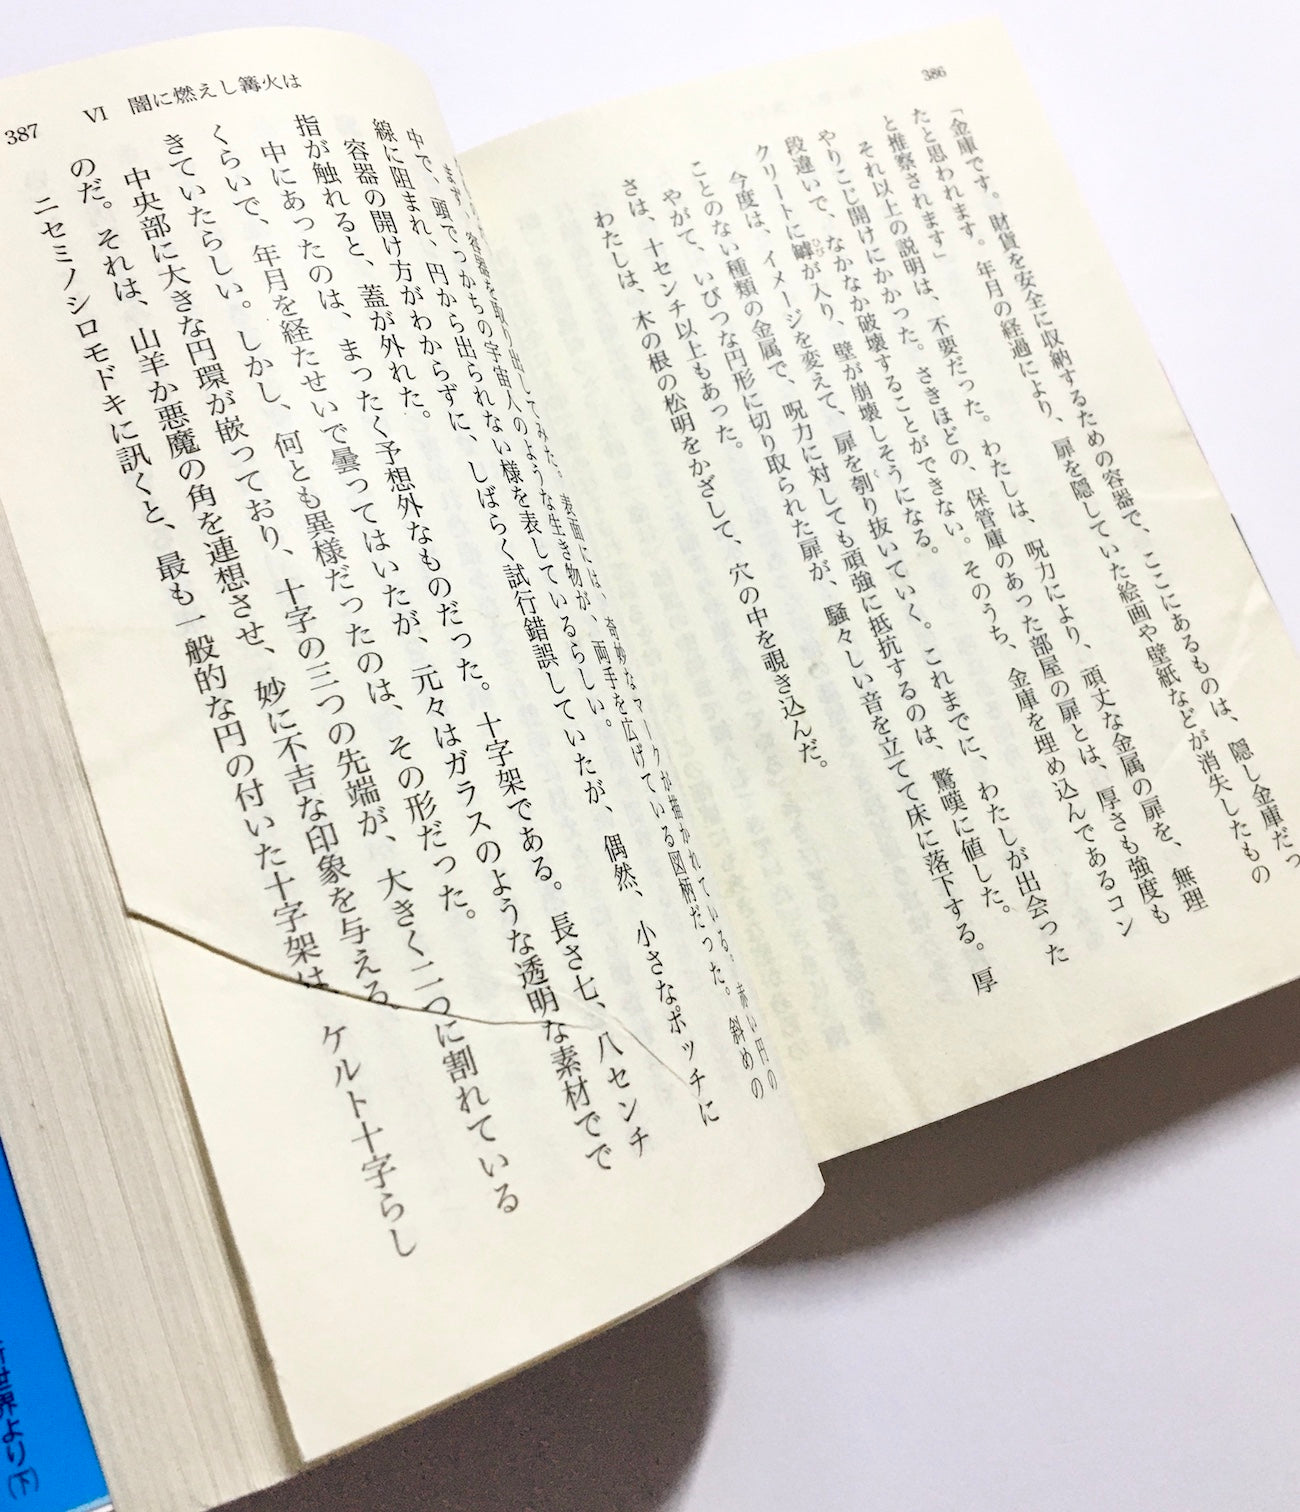 386
「金庫です。財貨を安全に収納するための容器で、ここにあるものは、隠し金庫だっ
たと思われます。年月の経過により、扉を隠していた絵画や壁紙などが消失したもの
と推察されます」
それ以上の説明は、不要だった。わたしは、呪力により、頑丈な金属の扉を、無理
やりこじ開けにかかった。さきほどの、保管庫のあった部屋の扉とは、厚さも強度も
段違いで、なかなか破壊することができない。そのうち、金庫を埋め込んであるコン
クリートに罅が入り、壁が崩壊しそうになる。
今度は、イメージを変えて、扉を刳り抜いていく。これまでに、わたしが出会った
ことのない種類の金属で、呪力に対しても頑強に抵抗するのは、驚嘆に値した。
やがて、いびつな円形に切り取られた扉が、騒々しい音を立てて床に落下する。厚
さは、十センチ以上もあった。
わたしは、木の根の松明をかざして、穴の中を覗き込んだ。
387
Ⅵ 闇に燃えし篝火は
まず、容器を取り出してみた。表面には、奇妙なマークが描かれている。赤い円の
中で、頭でっかちの宇宙人のような生き物が、両手を広げている図柄だった。斜めの
線に阻まれ、円から出られない様を表しているらしい。
容器の開け方がわからずに、しばらく試行錯誤していたが、偶然、小さなポッチに
指が触れると、蓋が外れた。
中にあったのは、まったく予想外なものだった。十字架である。長さ七、八センチ
くらいで、年月を経たせいで曇ってはいたが、元々はガラスのような透明な素材でで
きていたらしい。しかし、何とも異様だったのは、その形だった。
中央部に大きな円環が嵌っており、十字の三つの先端が、大きく二つに割れている
のだ。それは、山羊か悪魔の角を連想させ、妙に不吉な印象を与える。
ニセミノシロモドキに訊くと、最も一般的な円の付いた十字架は、ケルト十字らし
世界より(下)